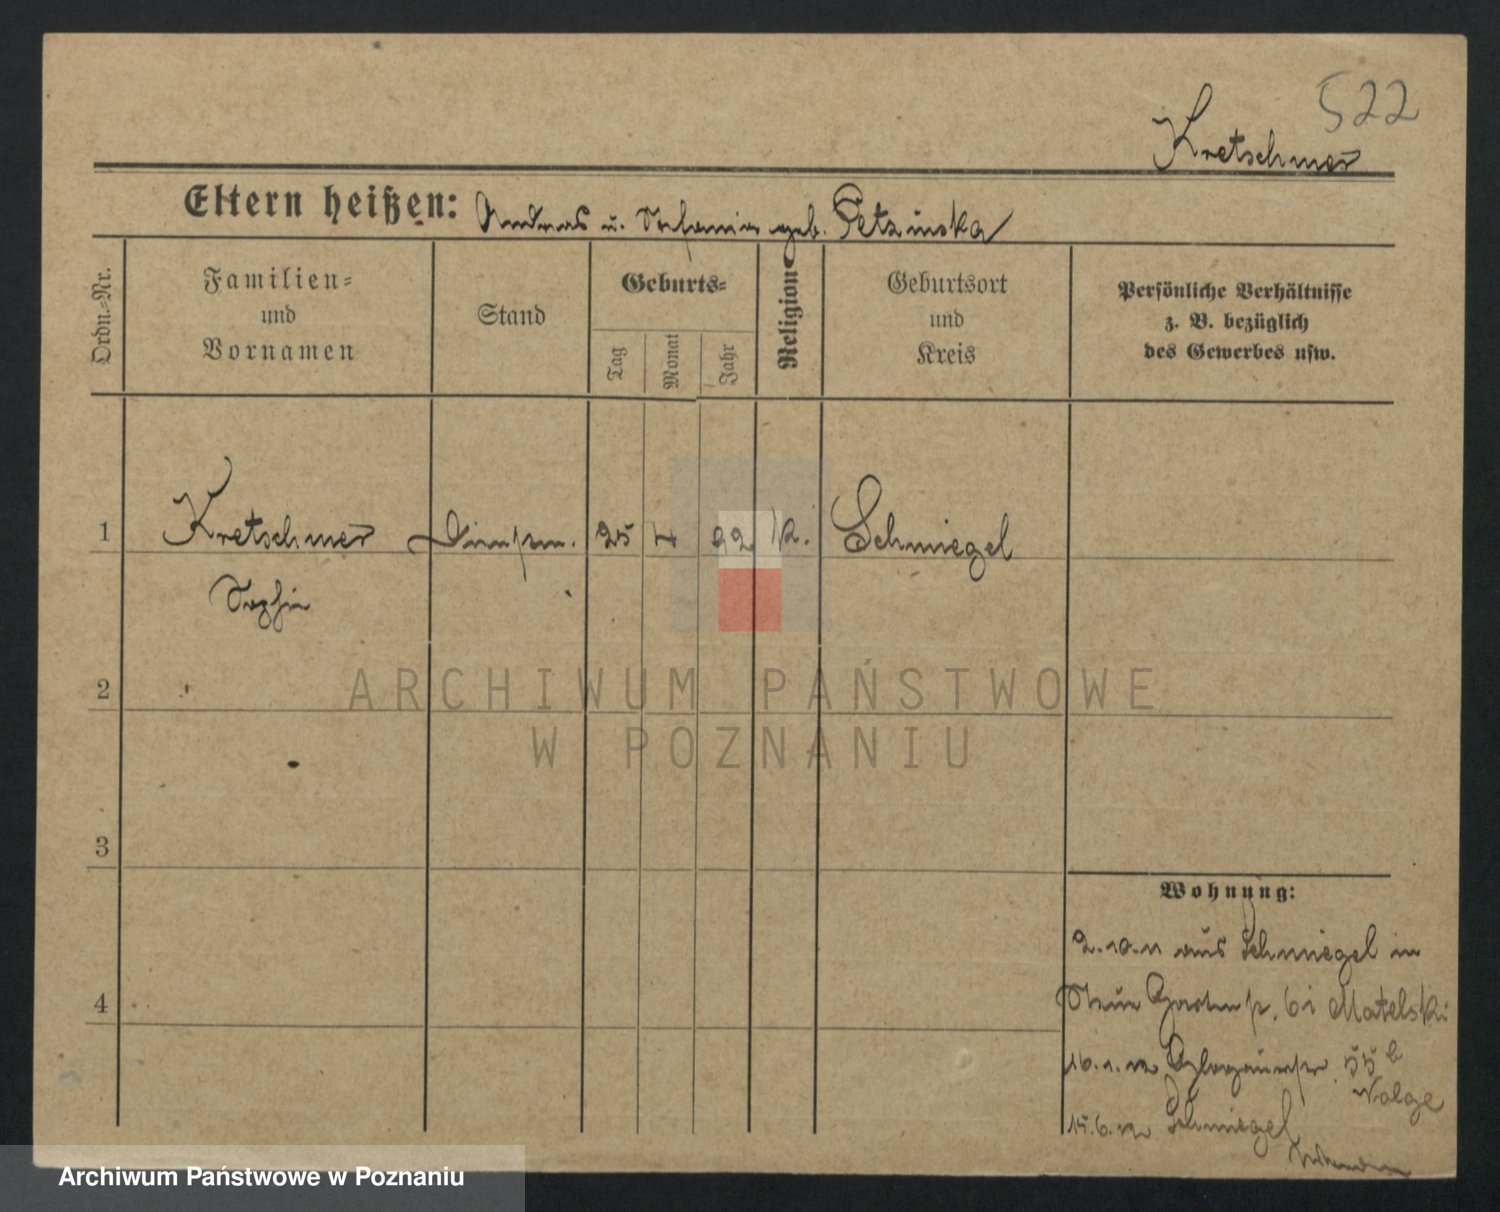 522
Kretschmer
Eltern heißen: Andreas u. Stefania geb. Petzinska
Ordn.-Nr.
Familien-
und
Vornamen
Stand
Geburts-
Tag
Monat
Jahr
Religion
Geburtsort
und
Kreis
Persönliche Verhältnisse
z. B. bezüglich
des Gewerbes usw.
1
Kretschmer
Sophie
25 4 92 k. Schmiegel
2
3
4
Wohnung:
2.10.11 aus Schmiegel in
Gartenstr. bei Matelski
16.1.12 Glogauerstr. 55 b
Wolge
15.6.12 Schmiegel
ARCHIWUM PAŃSTWOWE
W POZNANIU
Archiwum Państwowe w Poznaniu